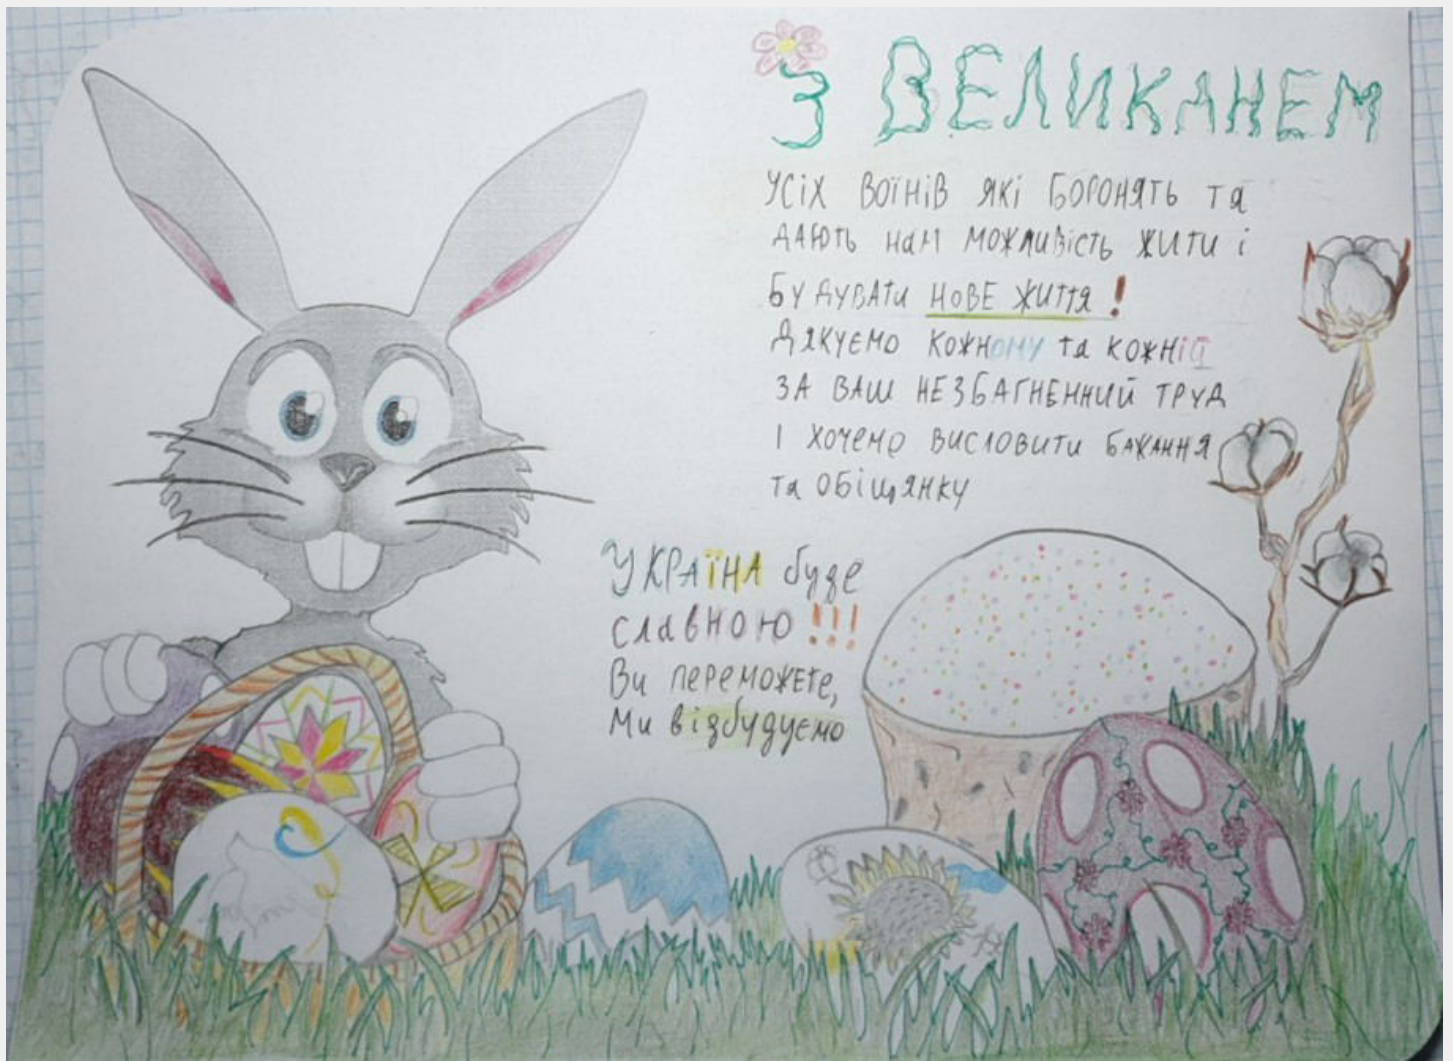 З ВЕЛИКАНЕМ
УСІХ ВОЇНІВ ЯКІ БОРОНЯТЬ ТА
ДАЮТЬ НАМ МОЖЛИВІСТЬ ЖИТИ І
БУДУВАТИ НОВЕ ЖИТТЯ !
ДЯКУЄМО КОЖНОМУ ТА КОЖНІЙ
ЗА ВАШ НЕЗБАГНЕННИЙ ТРУД
І ХОЧЕМО ВИСЛОВИТИ БАЖАННЯ
ТА ОБІЦЯНКУ
УКРАЇНА буде
славною !!!
Ви переможете,
Ми відбудуємо